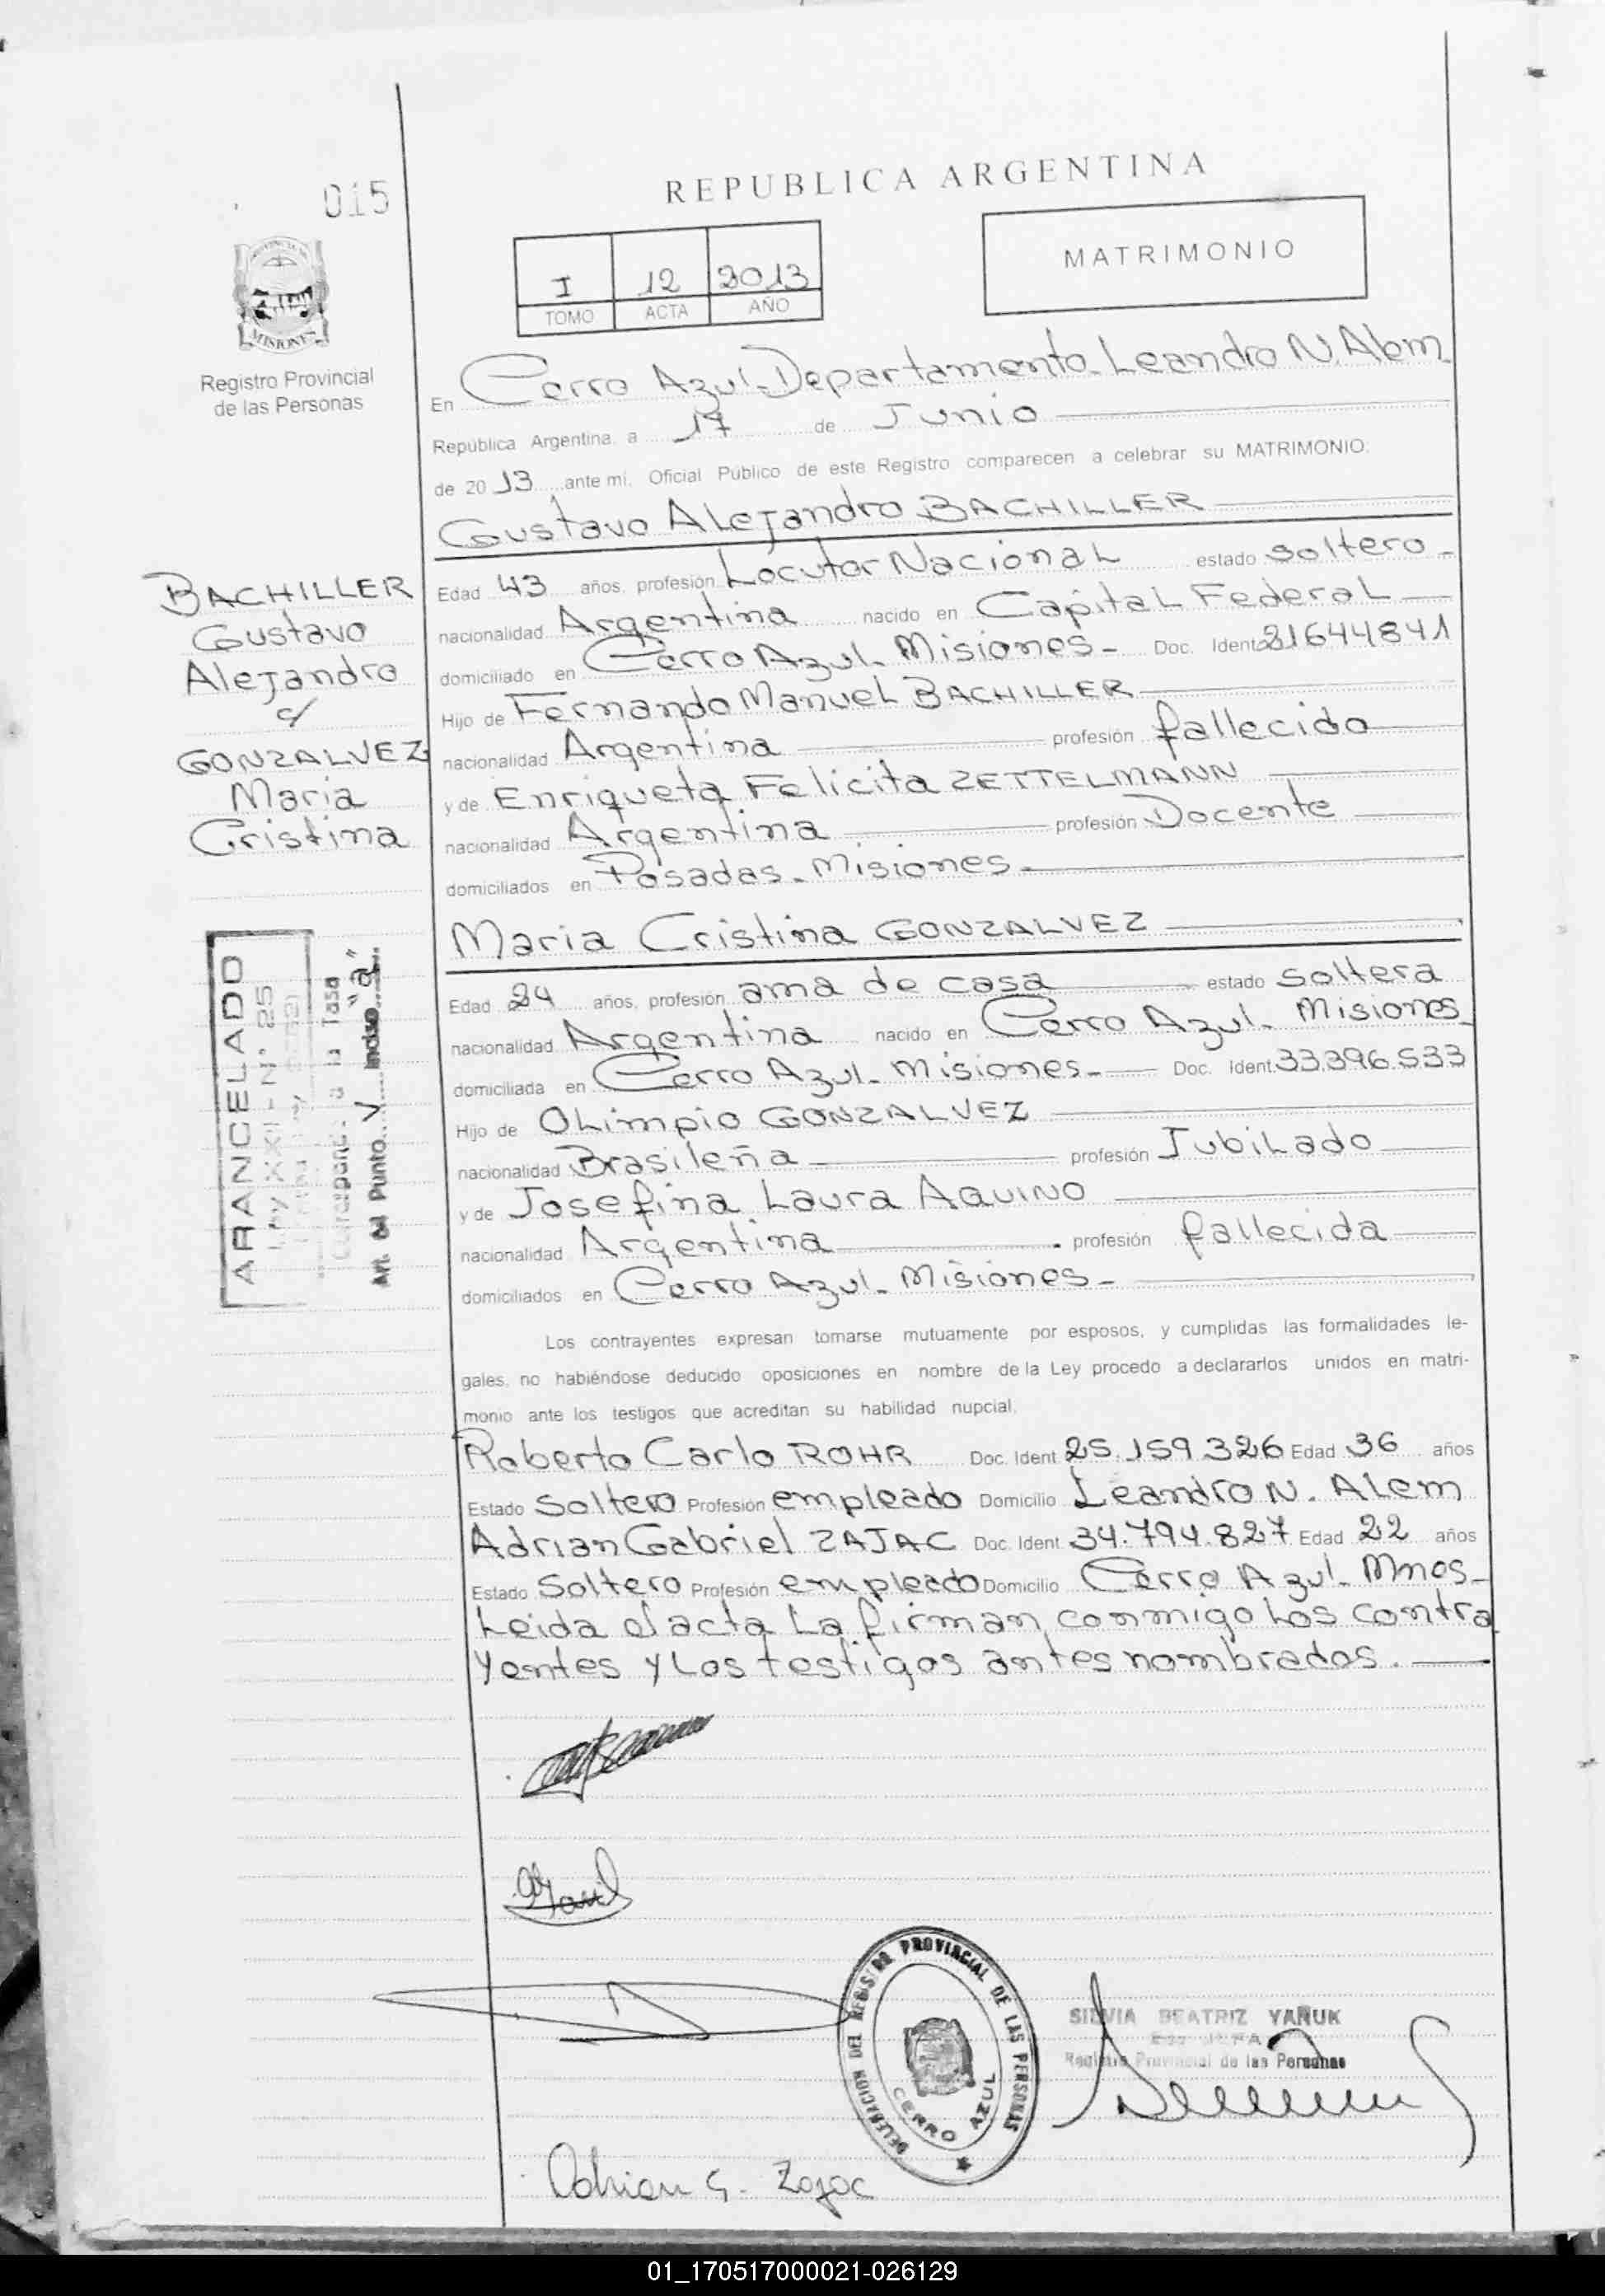 015
REPUBLICA ARGENTINA
MATRIMONIO
I 12 2013
TOMO ACTA AÑO
PROVINCIA DE
MISIONES
Registro Provincial
de las Personas
En Cerro Azul. Departamento Leandro N. Alem
República Argentina, a 17 de Junio
de 2013 ante mí, Oficial Público de este Registro comparecen a celebrar su MATRIMONIO:
Gustavo Alejandro BACHILLER
BACHILLER
Gustavo
Alejandro
c/
GONZALVEZ
Maria
Cristina
Edad 43 años, profesión Locutor Nacional estado soltero
nacionalidad Argentina nacido en Capital Federal
domiciliado en Cerro Azul. Misiones - Doc. Ident. 21644841
Hijo de Fernando Manuel BACHILLER
nacionalidad Argentina profesión fallecido
y de Enriqueta Felicita ZETTELMANN
nacionalidad Argentina profesión Docente
domiciliados en Posadas. Misiones
Maria Cristina GONZALVEZ
Edad 24 años, profesión ama de casa estado soltera
nacionalidad Argentina nacido en Cerro Azul. Misiones
domiciliada en Cerro Azul. Misiones - Doc. Ident. 33.396.533
Hijo de Olimpio GONZALVEZ
nacionalidad Brasileña profesión Jubilado
y de Josefina Laura AQUINO
nacionalidad Argentina profesión fallecida
domiciliados en Cerro Azul. Misiones -
ARANCELADO
Ley XXII - N° 25
Corresponde a la Tasa
Art. del Punto V Inciso "a"
Los contrayentes expresan tomarse mutuamente por esposos, y cumplidas las formalidades le-
gales, no habiéndose deducido oposiciones en nombre de la Ley procedo a declararlos unidos en matri-
monio ante los testigos que acreditan su habilidad nupcial.
Roberto Carlo ROHR Doc. Ident 25.159.326 Edad 36 años
Estado Soltero Profesión empleado Domicilio Leandro N. Alem
Adrian Gabriel ZAJAC Doc. Ident 34.794.827 Edad 22 años
Estado Soltero Profesión empleado Domicilio Cerro Azul. Mnes-
Leida el acta la firman conmigo los contra
yentes y los testigos antes nombrados.
DELEGACION DEL REGISTRO PROVINCIAL DE LAS PERSONAS
CERRO AZUL
SILVIA BEATRIZ YAÑUK
Registro Provincial de las Personas
Adrian G. Zajac
01_170517000021-026129